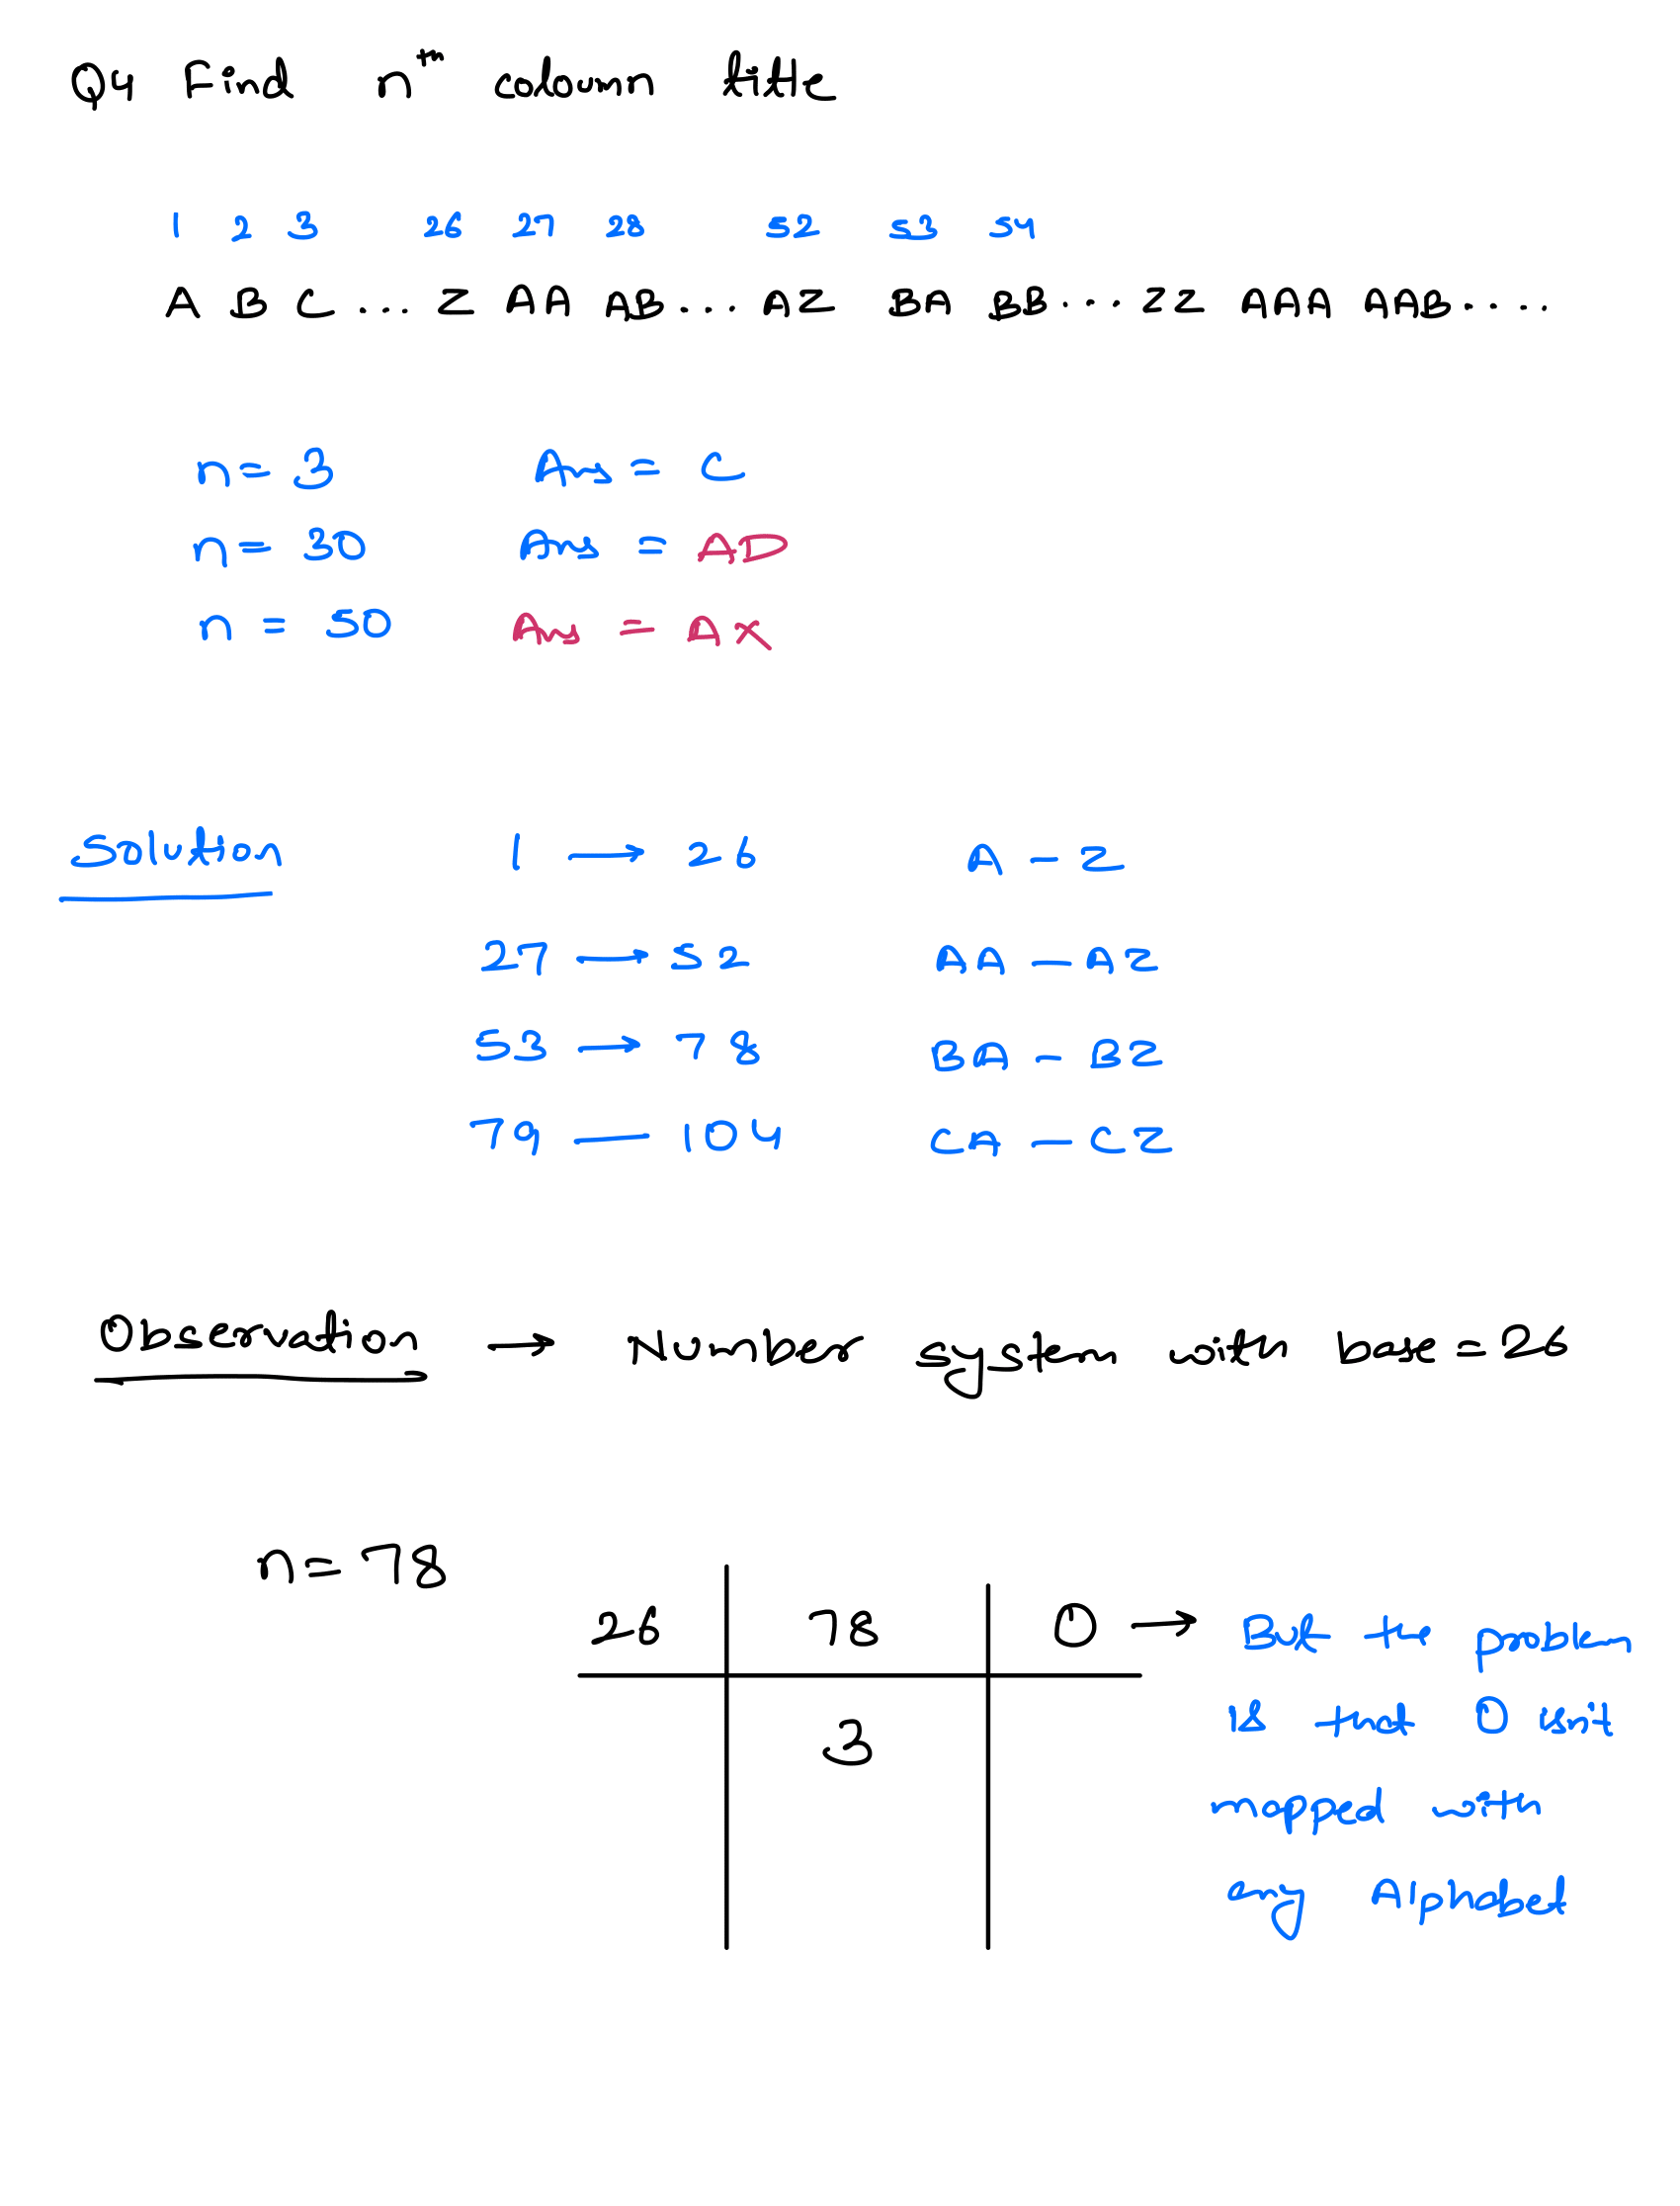 Q4 Find nth column title
1 2 3 26 27 28 52 53 54
A B C ... Z AA AB ... AZ BA BB .... ZZ AAA AAB .....
n = 3 Ans = C
n = 30 Ans = AD
n = 50 Ans = AX
Solution 1 → 26 A - Z
27 → 52 AA - AZ
53 → 78 BA - BZ
79 — 104 CA - CZ
Observation → Number system with base = 26
n = 78
26 78 0 → But the problem
3 is that 0 isn't
mapped with
any Alphabet